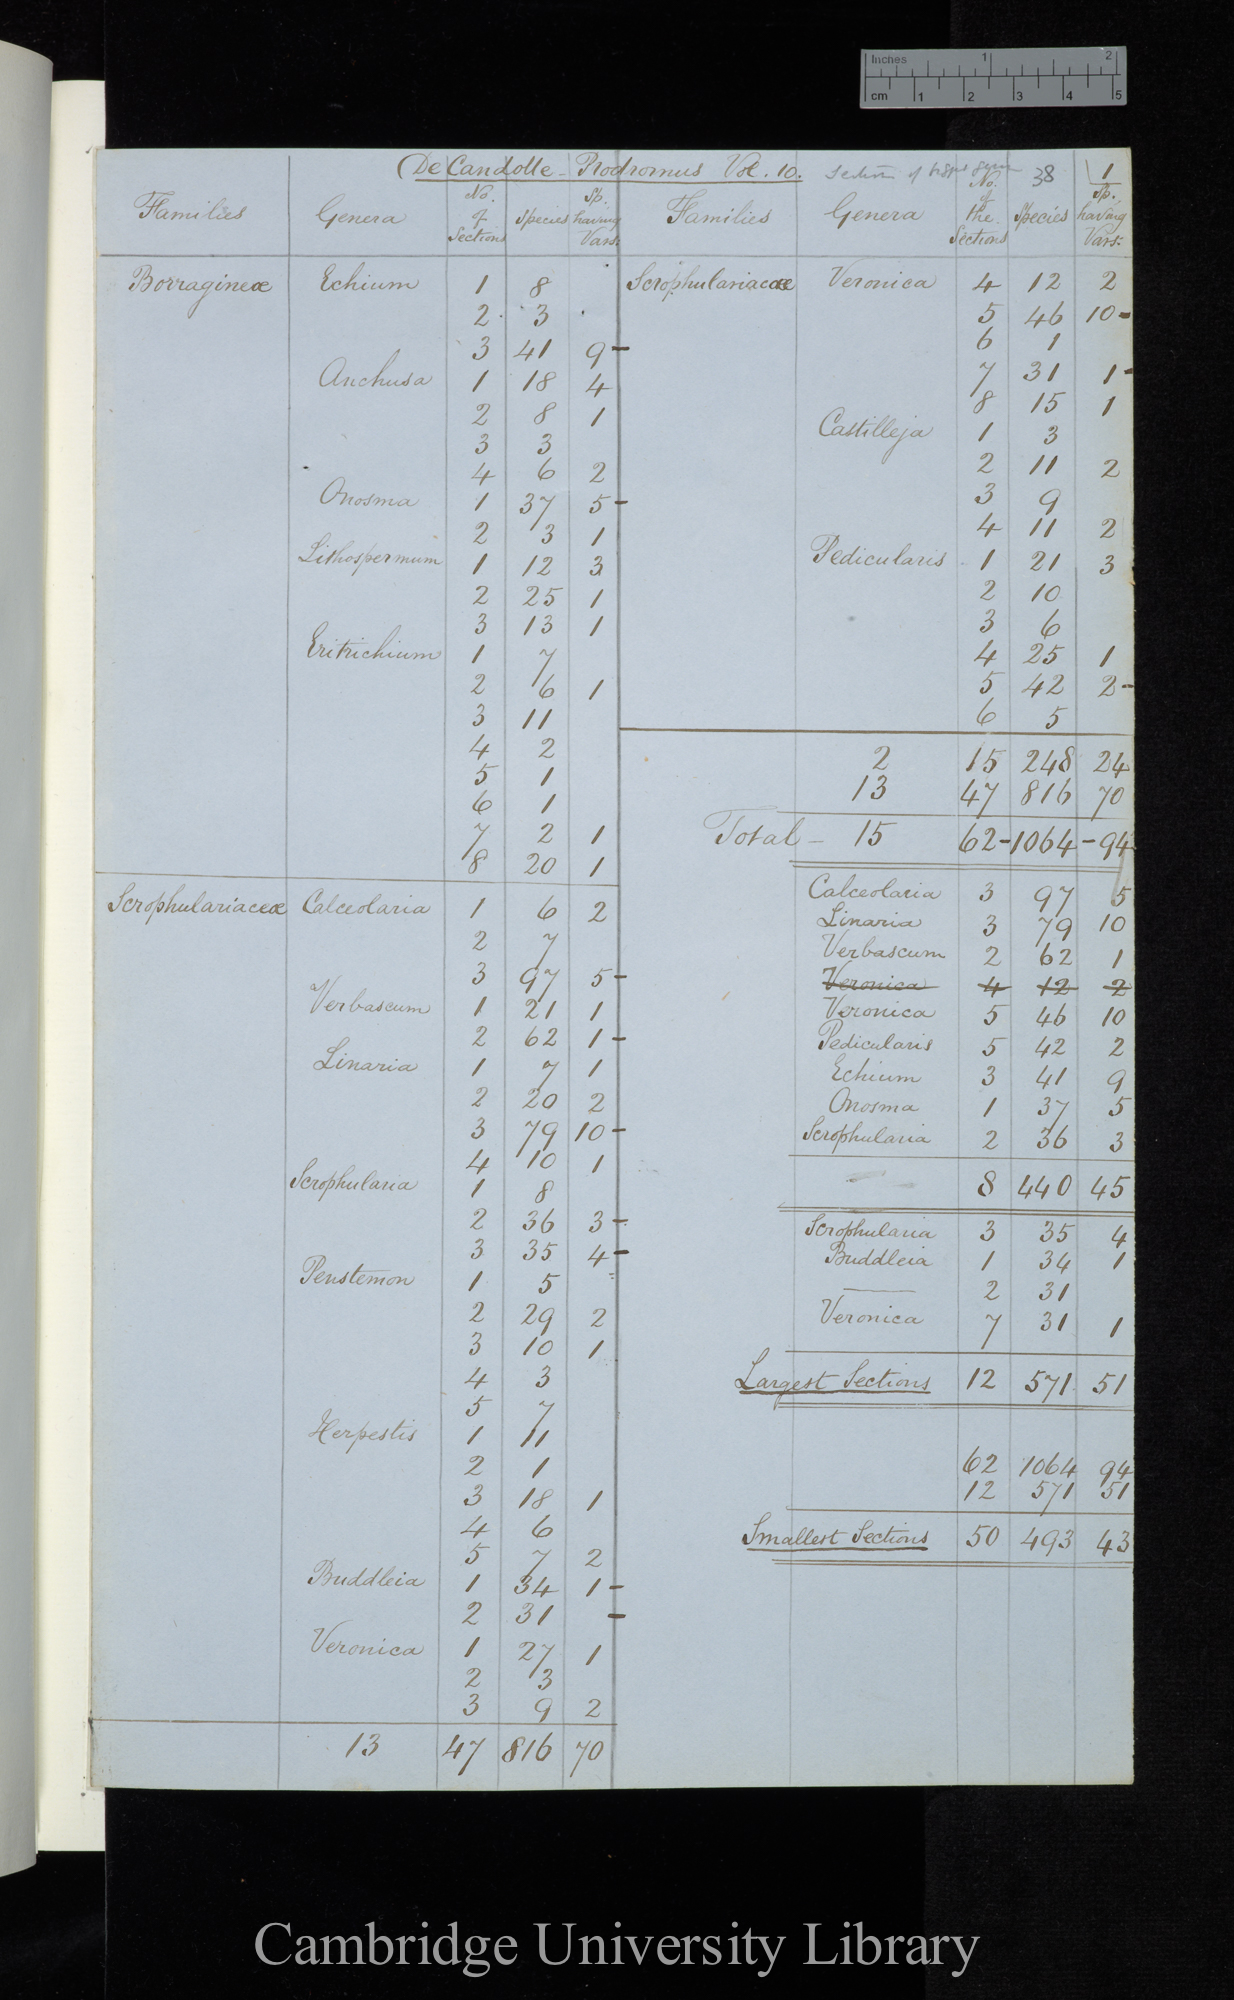 Inches 1 2
cm 1 2 3 4 5
(De Candolle - Prodromus Vol. 10. Section of 38 1
Families Genera No. of Sections Species Sp. having Vars:
Borragineæ Echium 1 8
2 3
3 41 9 -
Anchusa 1 18 4
2 8 1
3 3
4 6 2
Onosma 1 37 5 -
2 3 1
Lithospermum 1 12 3
2 25 1
3 13 1
Eritrichium 1 7
2 6 1
3 11
4 2
5 1
6 1
7 2 1
8 20 1
Scrophulariaceæ Calceolaria 1 6 2
2 7
3 97 5 -
Verbascum 1 21 1
2 62 1 -
Linaria 1 7 1
2 20 2
3 79 10 -
4 10 1
Scrophularia 1 8
2 36 3 -
3 35 4 -
Penstemon 1 5
2 29 2
3 10 1
4 3
5 7
Herpestis 1 11
2 1
3 18 1
4 6
5 7 2
Buddleia 1 34 1 -
2 31 -
Veronica 1 27 1
2 3
3 9 2
13 47 816 70
Families Genera No. of the Sections Species Sp. having Vars:
Scrophulariaceæ Veronica 4 12 2
5 46 10 -
6 1
7 31 1 -
8 15 1
Castilleja 1 3
2 11 2
3 9
4 11 2
Pedicularis 1 21 3
2 10
3 6
4 25 1
5 42 2 -
6 5
2 15 248 24
13 47 816 70
Total - 15 62 - 1064 - 94
Calceolaria 3 97 5
Linaria 3 79 10
Verbascum 2 62 1
Veronica 4 12 2
Veronica 5 46 10
Pedicularis 5 42 2
Echium 3 41 9
Onosma 1 37 5
Scrophularia 2 36 3
8 440 45
Scrophularia 3 35 4
Buddleia 1 34 1
— 2 31
Veronica 7 31 1
Largest Sections 12 571 51
62 1064 94
12 571 51
Smallest Sections 50 493 43
Cambridge University Library